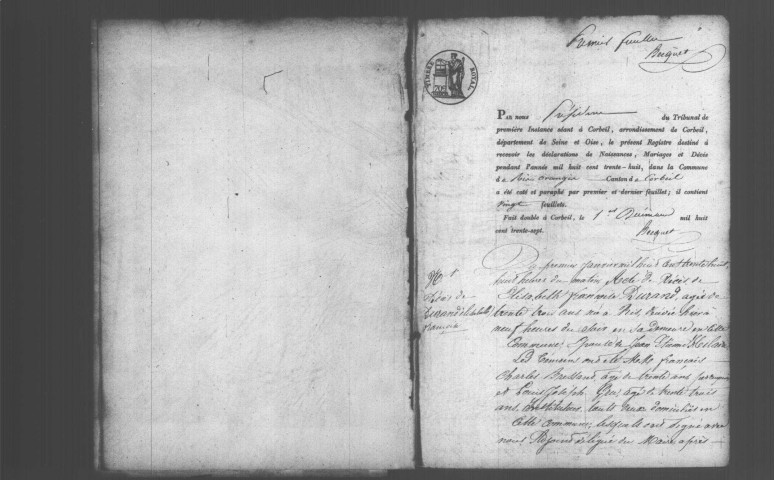 Premier feuillet
Becquet
TIMBRE ROYAL
PAR nous Président du Tribunal de
première Instance séant à Corbeil, arrondissement de Corbeil,
département de Seine et Oise, le présent Registre destiné à
recevoir les déclarations de Naissances, Mariages et Décès
pendant l'année mil huit cent trente-huit, dans la Commune
de Canton de Corbeil
a été coté et paraphé par premier et dernier feuillet; il contient
vingt feuillets.
Fait double à Corbeil, le 1er Décembre mil huit
cent trente-sept.
Becquet
Du premier Janvier mil huit cent trente huit,
huit heures du matin Acte de Décès de
Elisabeth françoise Durand, agée de
trente trois ans née à décédée hier à
neuf heures du soir en sa demeure en cette
Commune, Epouse de Jean
Les témoins ont été Mrs français
Charles agé de trente ans
et Louis Joseph agé de trente trois
ans, Instituteur, tous deux domiciliés en
cette Commune, lesquels ont signé avec
nous Adjoint délégué du Maire après
No 1
Décès de
Durand Elisabeth
françoise